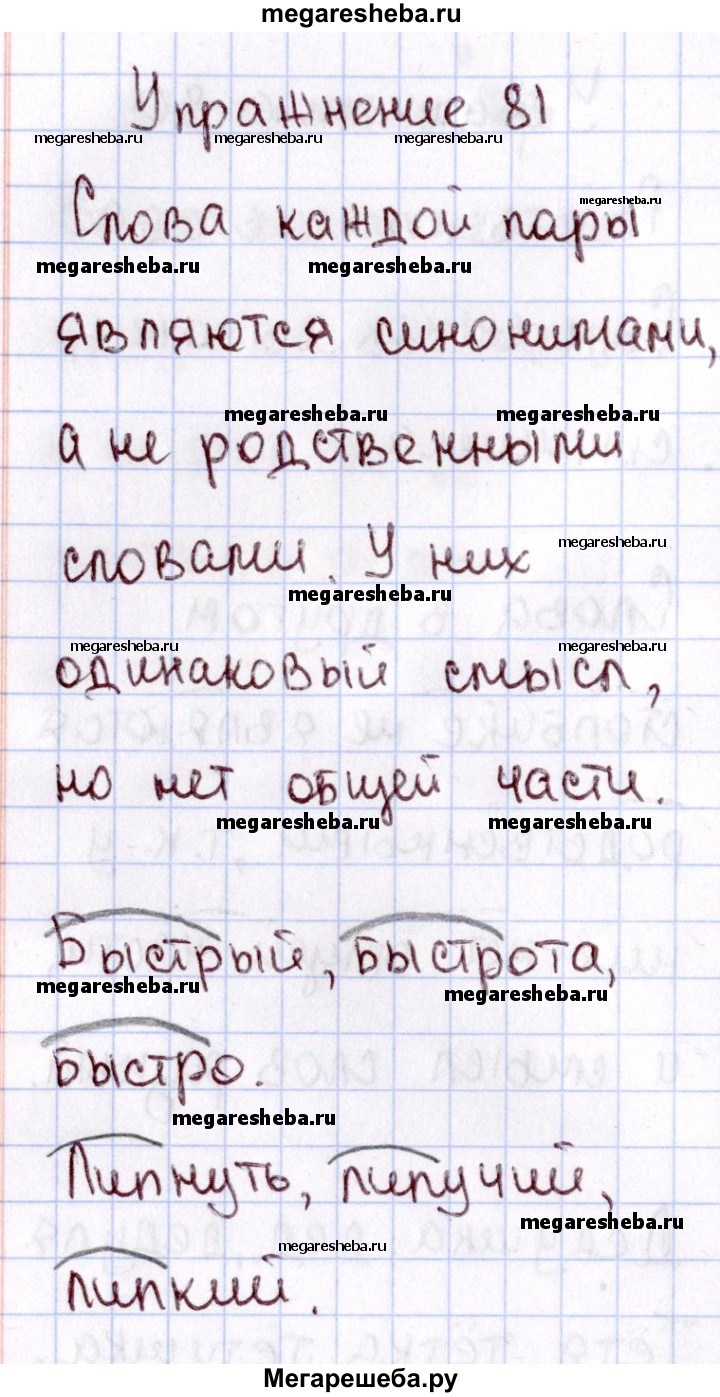 megaresheba.ru
Упражнение 81
megaresheba.ru megaresheba.ru megaresheba.ru
Слова каждой пары
megaresheba.ru
megaresheba.ru megaresheba.ru
являются синонимами,
megaresheba.ru megaresheba.ru
а не родственными
словами. У них
megaresheba.ru
megaresheba.ru
megaresheba.ru megaresheba.ru
одинаковый смысл,
но нет общей части.
megaresheba.ru megaresheba.ru
Быстрый, быстрота,
megaresheba.ru megaresheba.ru
быстро.
megaresheba.ru
Липнуть, липучий,
megaresheba.ru
megaresheba.ru
липкий.
Мегарешеба.ру